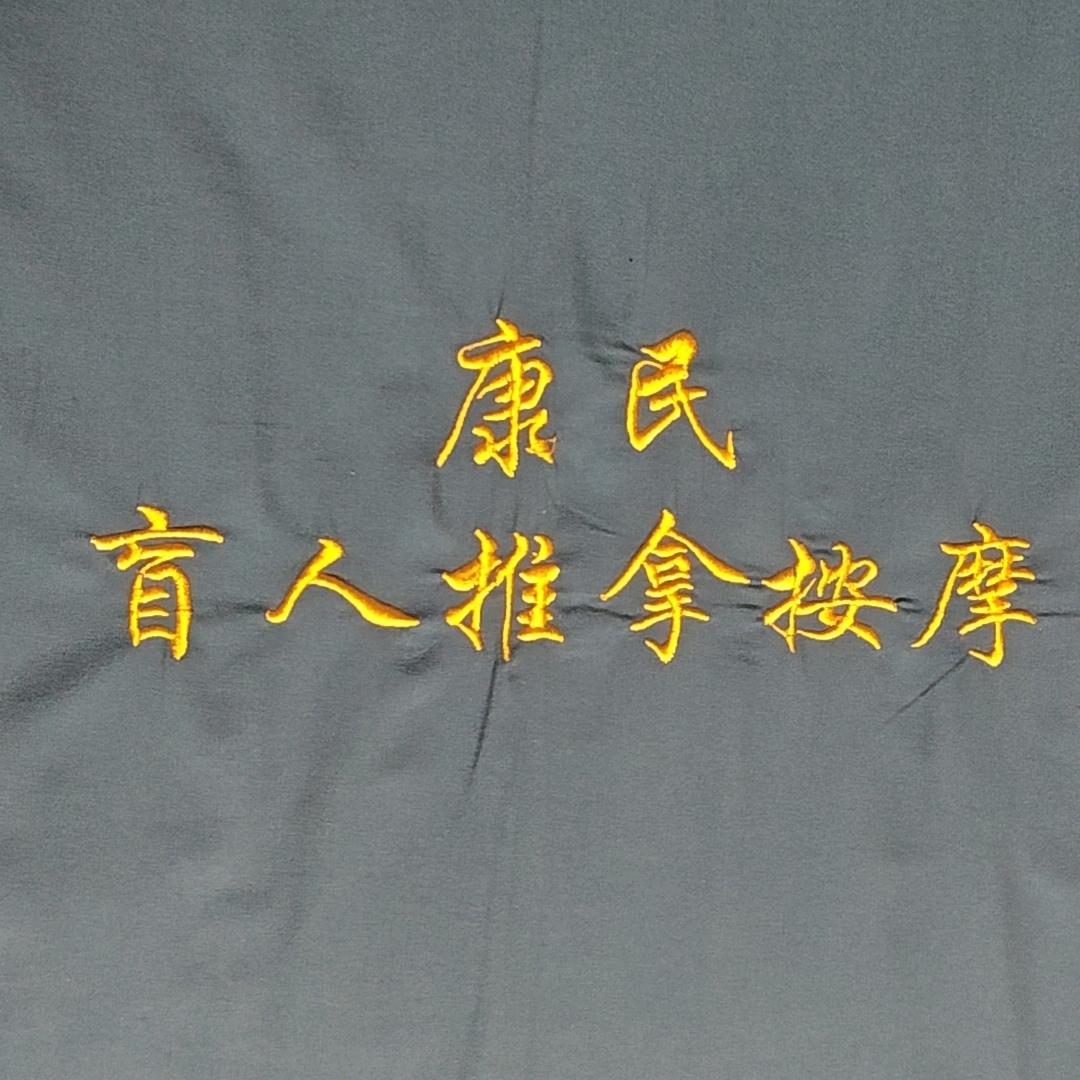 康民
盲人推拿按摩